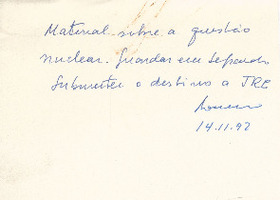 Material sobre a questão
nuclear. Guardar em separado
Submeter o destino a JRE
14.11.92